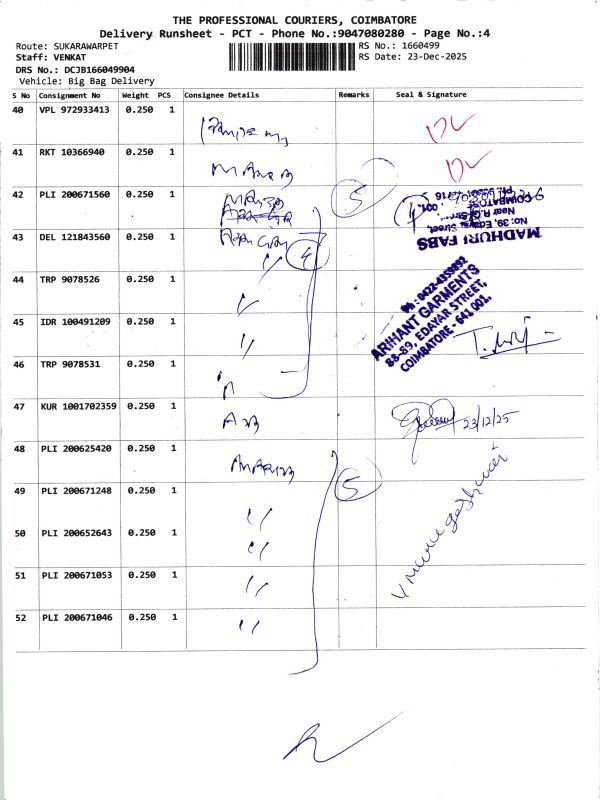 THE PROFESSIONAL COURIERS, COIMBATORE
Delivery Runsheet - PCT - Phone No.:9047080280 - Page No.:4
Route: SUKARAWARPET
RS No.: 1660499
Staff: VENKAT
RS Date: 23-Dec-2025
DRS No.: DCJB166049904
Vehicle: Big Bag Delivery
S No Consignment No Weight PCS Consignee Details Remarks Seal & Signature
40 VPL 972933413 0.250 1
41 RKT 10366940 0.250 1
42 PLI 200671560 0.250 1 5
43 DEL 121843560 0.250 1 " 4
MADHURI FABS
No: 39, Edayar Street,
COIMBATORE
44 TRP 9078526 0.250 1 "
Ph : 0422-4359892
ARIHANT GARMENTS
88-89, EDAYAR STREET,
COIMBATORE - 641 001.
45 IDR 100491209 0.250 1 "
46 TRP 9078531 0.250 1 "
47 KUR 1001702359 0.250 1 23/12/25
48 PLI 200625420 0.250 1 5
49 PLI 200671248 0.250 1 "
50 PLI 200652643 0.250 1 "
51 PLI 200671053 0.250 1 "
52 PLI 200671046 0.250 1 "